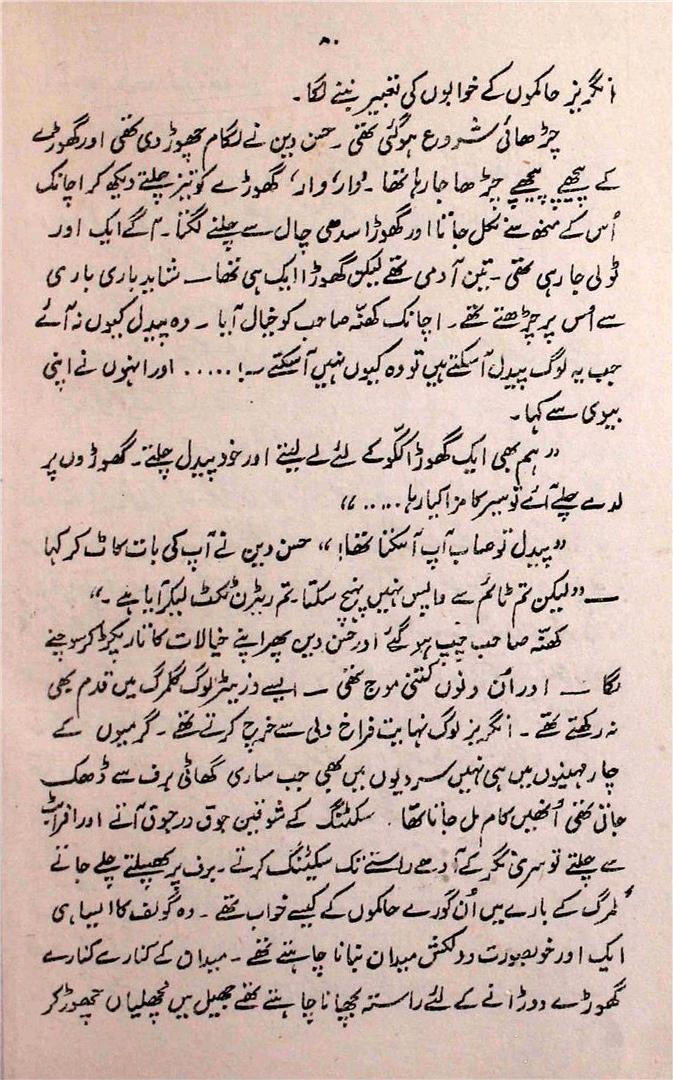 ۸۰
انگریز حاکموں کے خوابوں کی تعبیر بننے لگا۔
چڑھائی شروع ہوگئی تھی۔ حسن دین نے لگام چھوڑ دی تھی اور گھوڑے
کے پیچھے پیچھے چڑھا جا رہا تھا۔ ’وار‘ وار‘ گھوڑے کو تیز چلتے دیکھ کر اچانک
اُس کے منھ سے نکل جاتا اور گھوڑا سدھی چال سے چلنے لگتا۔ آگے ایک اور
ٹولی جا رہی تھی۔ تین آدمی تھے لیکن گھوڑا ایک ہی تھا — شاید باری باری
سے اُس پر چڑھتے تھے۔ اچانک کھنّہ صاحب کو خیال آیا۔ وہ پیدل کیوں نہ آئے
جب یہ لوگ پیدل آ سکتے ہیں تو وہ کیوں نہیں آ سکتے —! ..... اور انہوں نے اپنی
بیوی سے کہا۔
”ہم بھی ایک گھوڑا ککّو کے لئے لے لیتے اور خود پیدل چلتے۔ گھوڑوں پر
لدے چلے آئے تو سیر کا مزا کیا رہا.....“
”پیدل تو صاب آپ آ سکتا تھا!“ حسن دین نے آپ کی بات کاٹ کر کہا
— ”لیکن تم ٹائم سے واپس نہیں پہنچ سکتا۔ تم ریٹرن ٹکٹ لیکر آیا ہے۔“
کھنّہ صاحب چپ ہو گئے اور حسن دین پھر اپنے خیالات کا تار پکڑ کر سوچنے
لگا — اور اُن دنوں کتنی موج تھی — ایسے وزیٹر لوگ گلمرگ میں قدم بھی
نہ رکھتے تھے۔ انگریز لوگ نہایت فراخ دلی سے خرچ کرتے تھے۔ گرمیوں کے
چار مہینوں میں ہی نہیں سردیوں میں بھی جب ساری گھاٹی برف سے ڈھک
جاتی تھی اُنھیں کام مل جاتا تھا۔ سکیٹنگ کے شوقین جوق در جوق آتے اور افرابٹ
سے چلتے تو سری نگر کے آدھے راستے تک سکیٹنگ کرتے۔ برف پر کھیلتے چلے جاتے
گلمرگ کے بارے میں اُن گورے حاکموں کے کیسے خواب تھے۔ وہ گولف کا ایسا ہی
ایک اور خوبصورت و دلکش میدان بنانا چاہتے تھے۔ میدان کے کنارے کنارے
گھوڑے دوڑانے کے لئے راستہ بچھانا چاہتے تھے جھیل میں مچھلیاں چھوڑ کر